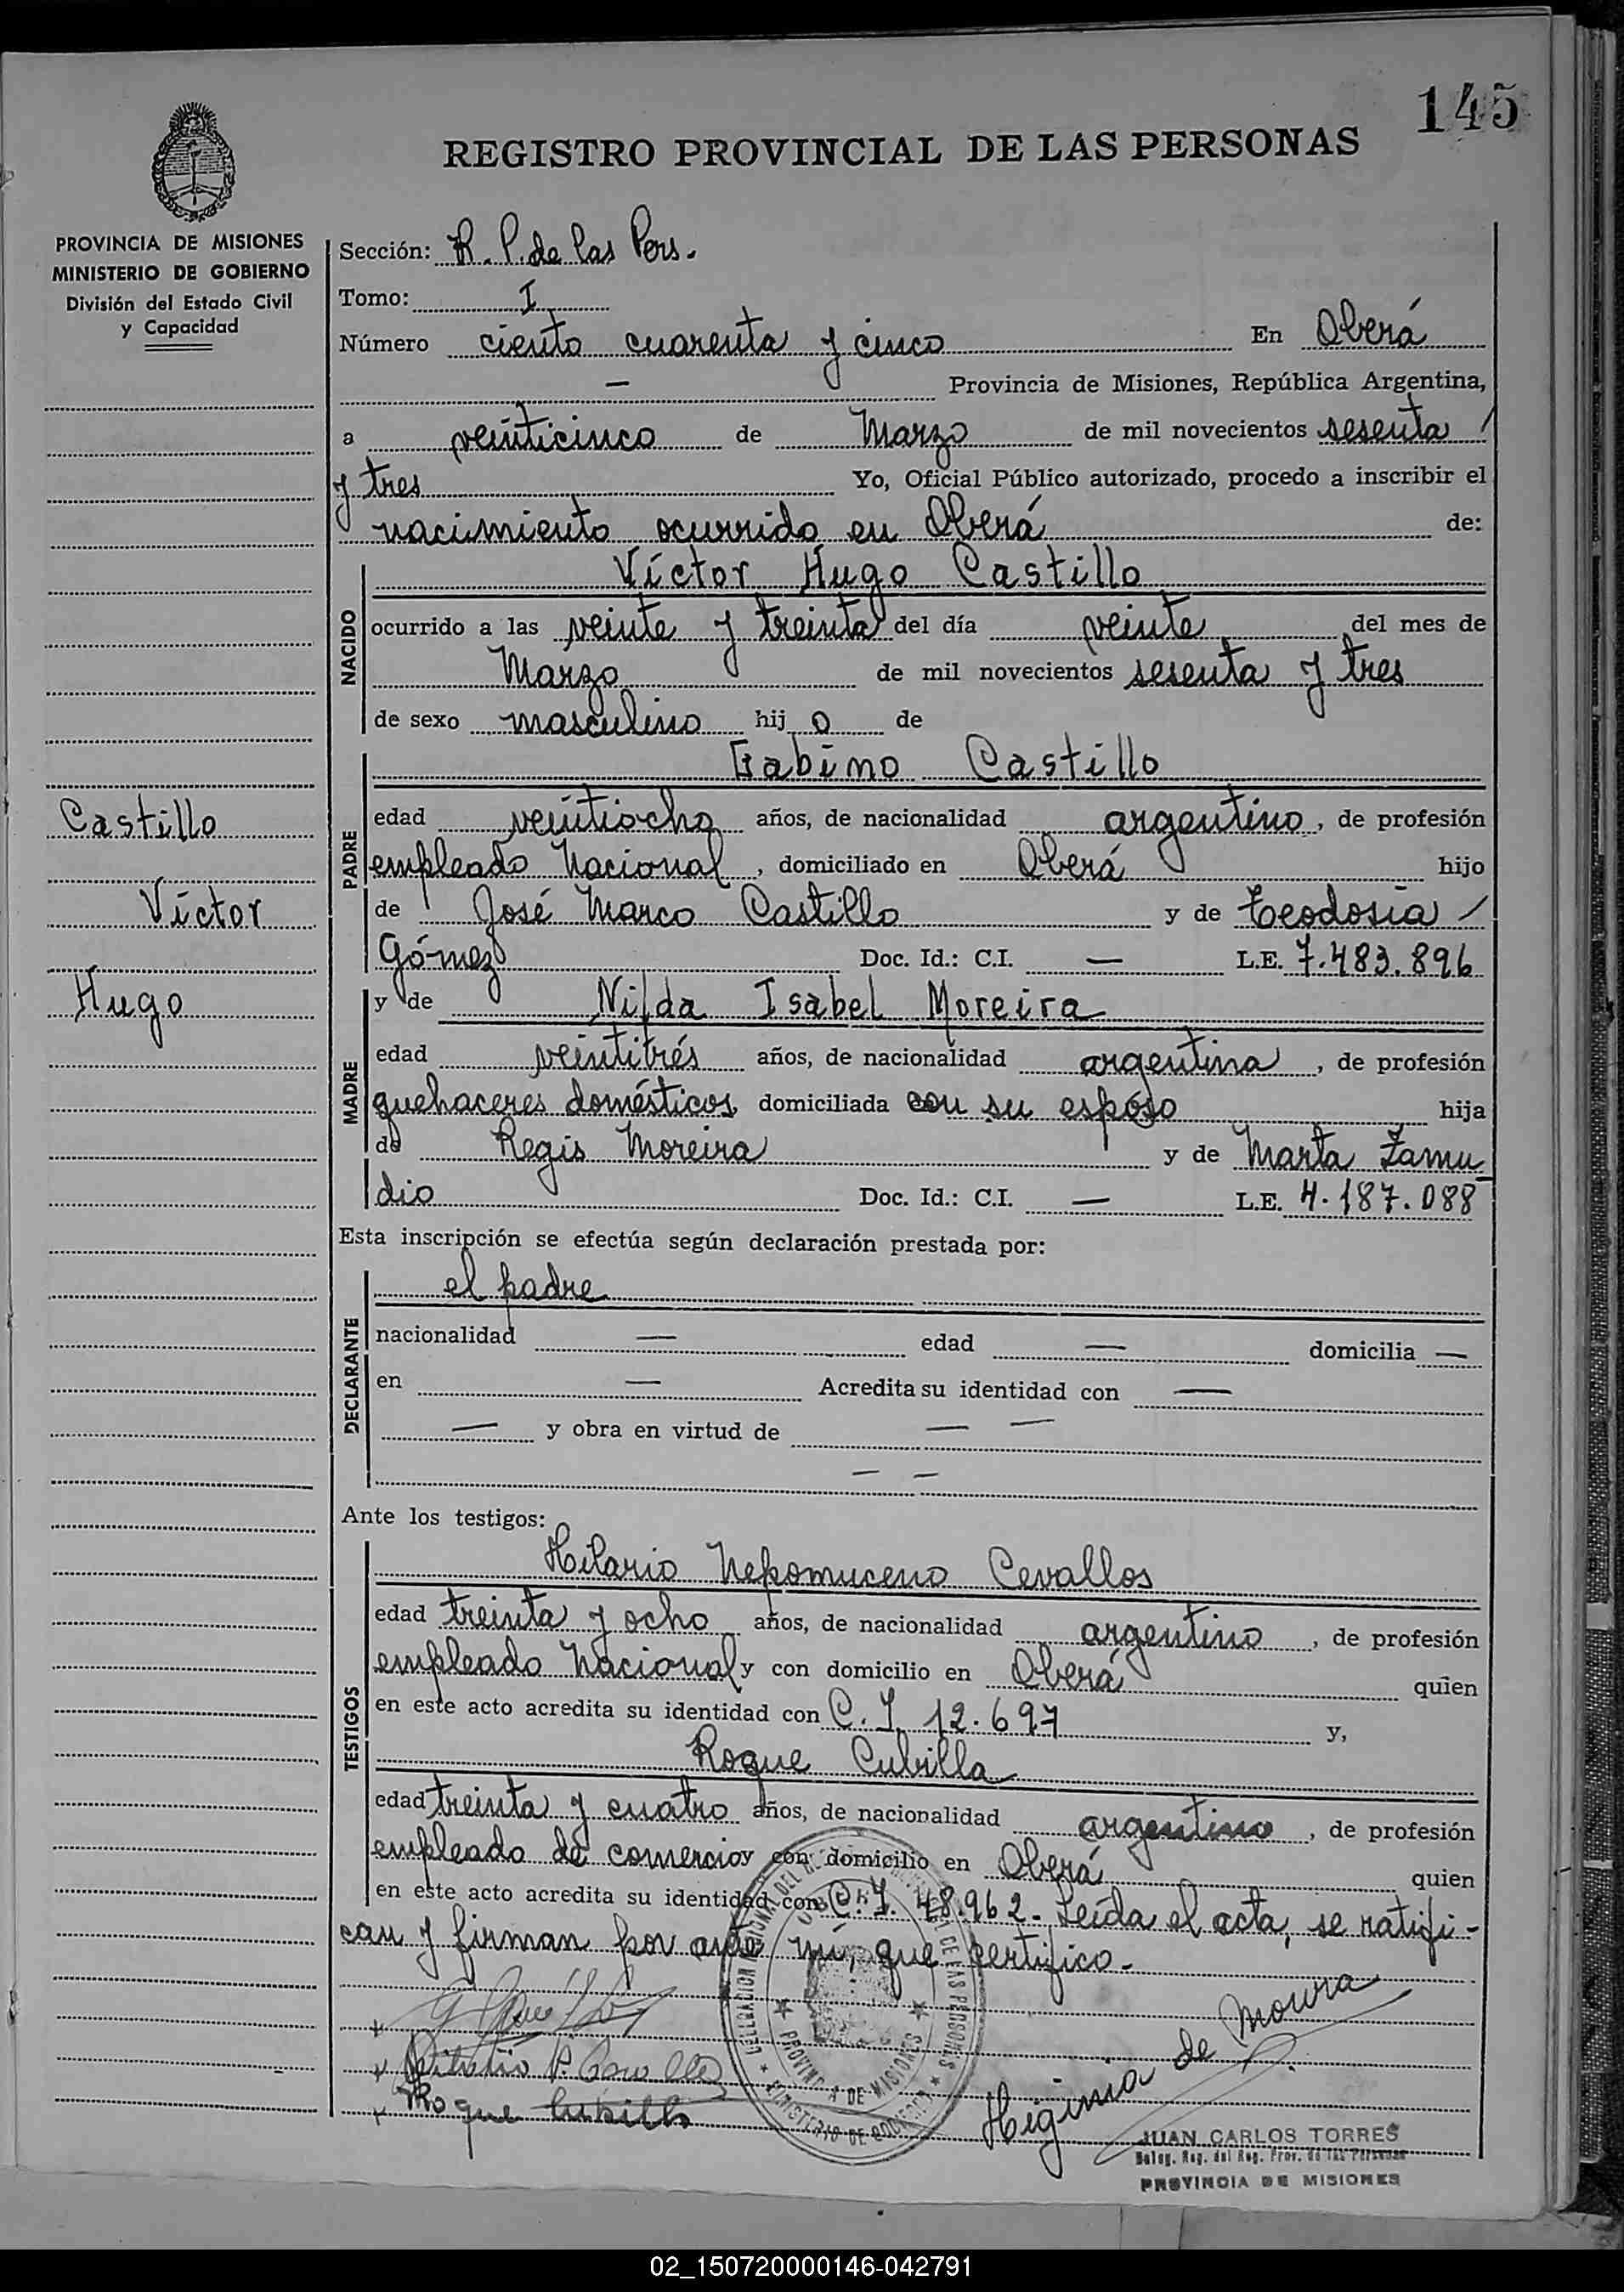 145
REGISTRO PROVINCIAL DE LAS PERSONAS
PROVINCIA DE MISIONES
MINISTERIO DE GOBIERNO
División del Estado Civil
y Capacidad
Castillo
Víctor
Hugo
Sección: R. P. de las Pers.
Tomo: I
Número ciento cuarenta y cinco En Oberá
— Provincia de Misiones, República Argentina,
a veinticinco de Marzo de mil novecientos sesenta /
y tres Yo, Oficial Público autorizado, procedo a inscribir el
nacimiento ocurrido en Oberá de:
NACIDO
Víctor Hugo Castillo
ocurrido a las veinte y treinta del día veinte del mes de
Marzo de mil novecientos sesenta y tres
de sexo masculino hij o de
PADRE
Gabino Castillo
edad veintiocho años, de nacionalidad argentino, de profesión
empleado Nacional, domiciliado en Oberá hijo
de José Marco Castillo y de Teodosia /
Gómez Doc. Id.: C.I. — L.E. 7.483.896
MADRE
y de Nilda Isabel Moreira
edad veintitrés años, de nacionalidad argentina, de profesión
quehaceres domésticos, domiciliada con su esposo hija
de Regis Moreira y de Marta Zamu
dio Doc. Id.: C.I. — L.E. 4.187.088
Esta inscripción se efectúa según declaración prestada por:
DECLARANTE
el padre
nacionalidad — edad — domicilia —
en — Acredita su identidad con —
— y obra en virtud de — —
— —
Ante los testigos:
TESTIGOS
Hilario Nepomuceno Cevallos
edad treinta y ocho años, de nacionalidad argentino, de profesión
empleado Nacional y con domicilio en Oberá quien
en este acto acredita su identidad con C.I. 12.697 y,
Roque Cubilla
edad treinta y cuatro años, de nacionalidad argentino, de profesión
empleado de comercio y con domicilio en Oberá quien
en este acto acredita su identidad con C.I. 48.962. Leída el acta, se ratifi-
can y firman por ante mí, que certifico.
Roque Cubilla
Higinia de Moura
PROVINCIA DE MISIONES
MINISTERIO DE GOBIERNO
JUAN CARLOS TORRES
Deleg. Reg. del Reg. Prov. de las Personas
PROVINCIA DE MISIONES
02_150720000146-042791